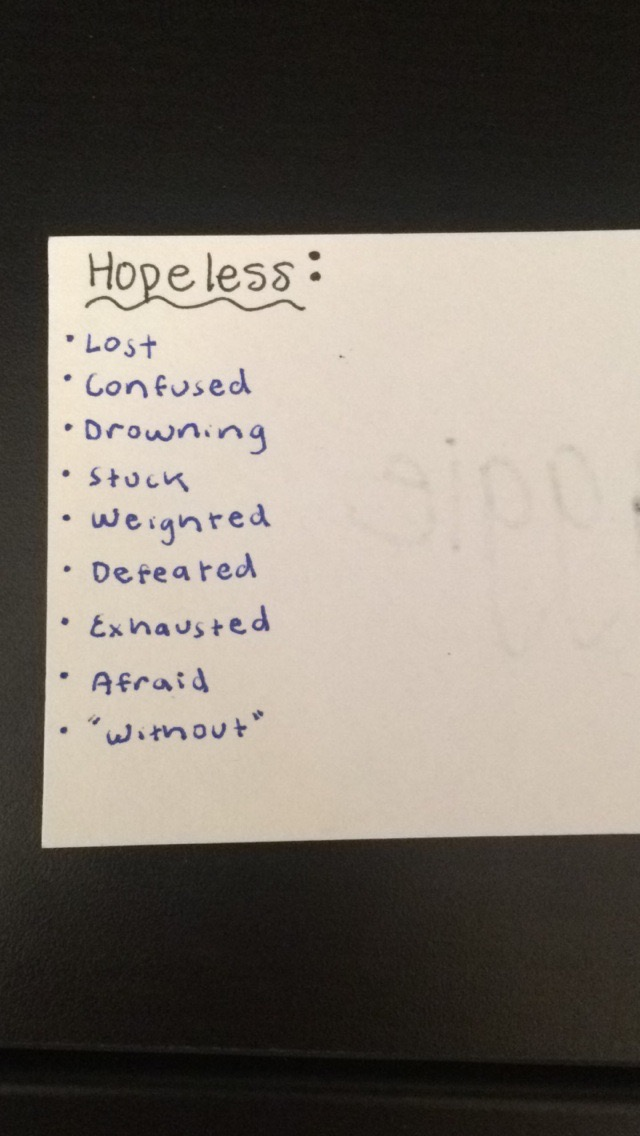 Hopeless:
• Lost
• Confused
• Drowning
• Stuck
• Weighted
• Defeated
• Exhausted
• Afraid
• "Without"